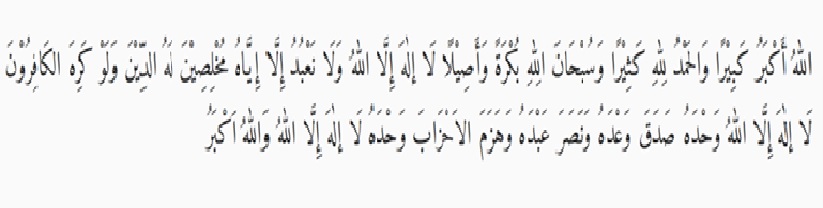 اللهُ أَكْبَرُ كَبِيْرًا وَالْحَمْدُ لِلهِ كَثِيْرًا وَسُبْحَانَ اللهِ بُكْرَةً وَأَصِيْلًا لَا إِلٰهَ إِلَّا اللهُ وَلَا نَعْبُدُ إِلَّا إِيَّاهُ مُخْلِصِيْنَ لَهُ الدِّيْنَ وَلَوْ كَرِهَ الكَافِرُوْنَ
لَا إِلٰهَ إِلَّا اللهُ وَحْدَهُ صَدَقَ وَعْدَهُ وَنَصَرَ عَبْدَهُ وَهَزَمَ الاَحْزَابَ وَحْدَهُ لَا إِلٰهَ إِلَّا اللهُ وَاللهُ اَكْبَرُ